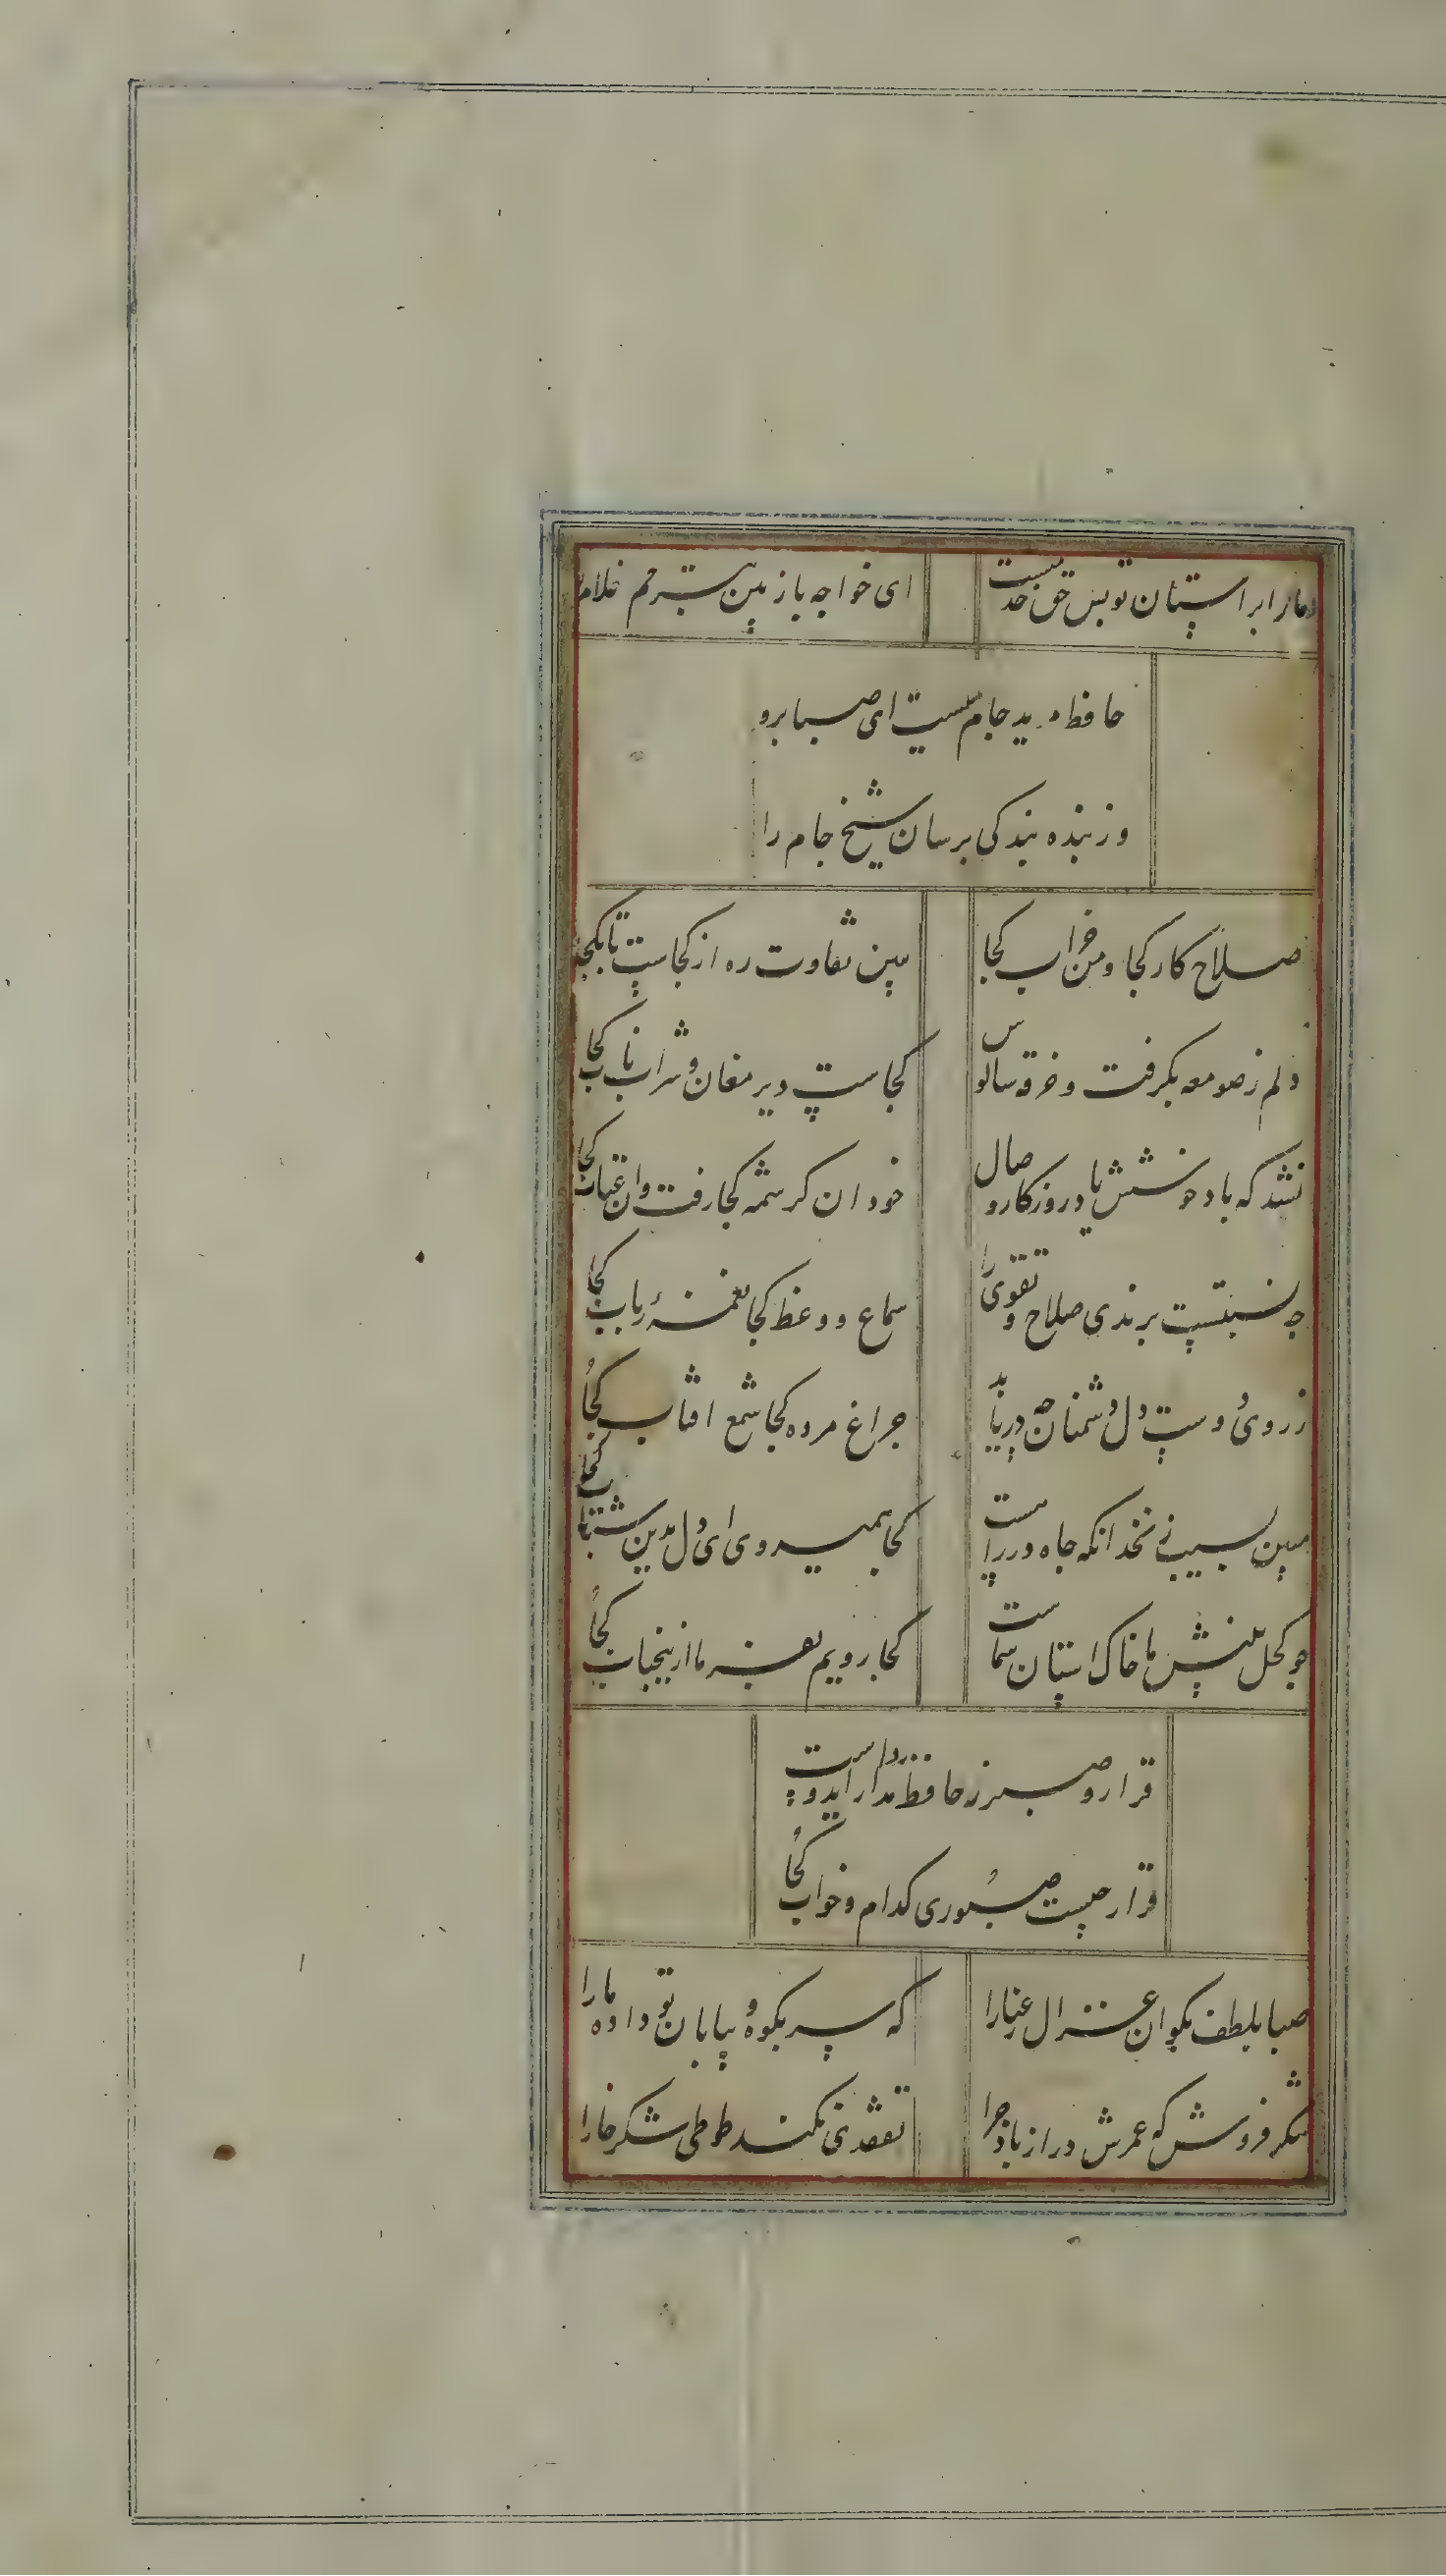 مارا براستان تو بس حق خدمتست
ای خواجه باز بین بترحم غلام
حافظ مرید جام میست ای صبا برو
وز بنده بندکی برسان شیخ جام را
صلاح کار کجا و من خراب کجا
ببین تفاوت ره از کجاست تا بکجا
دلم ز صومعه بکرفت و خرقه سالوس
کجاست دیر مغان و شراب ناب کجا
بشد که یاد خوشش باد روزکار وصال
خود ان کرشمه کجا رفت وان عتاب کجا
چه نسبتست برندی صلاح و تقوی را
سماع و وعظ کجا نغمهٔ رباب کجا
ز روی دوست دل دشمنان چه دریابد
چراغ مرده کجا شمع افتاب کجا
مبین بسیب زنخدان که چاه در راهست
کجا همیروی ای دل بدین شتاب کجا
چو کحل بینش ما خاک استان شماست
کجا رویم بفرما ازینجناب کجا
قرار و صبر ز حافظ مدار ایدوست
قرار چیست صبوری کدام و خواب کجا
صبا بلطف بکو ان غزال رعنا را
که سر بکوه و بیابان تو داده ما را
شکر فروش که عمرش دراز باد چرا
تفقدی نکند طوطی شکرخا را